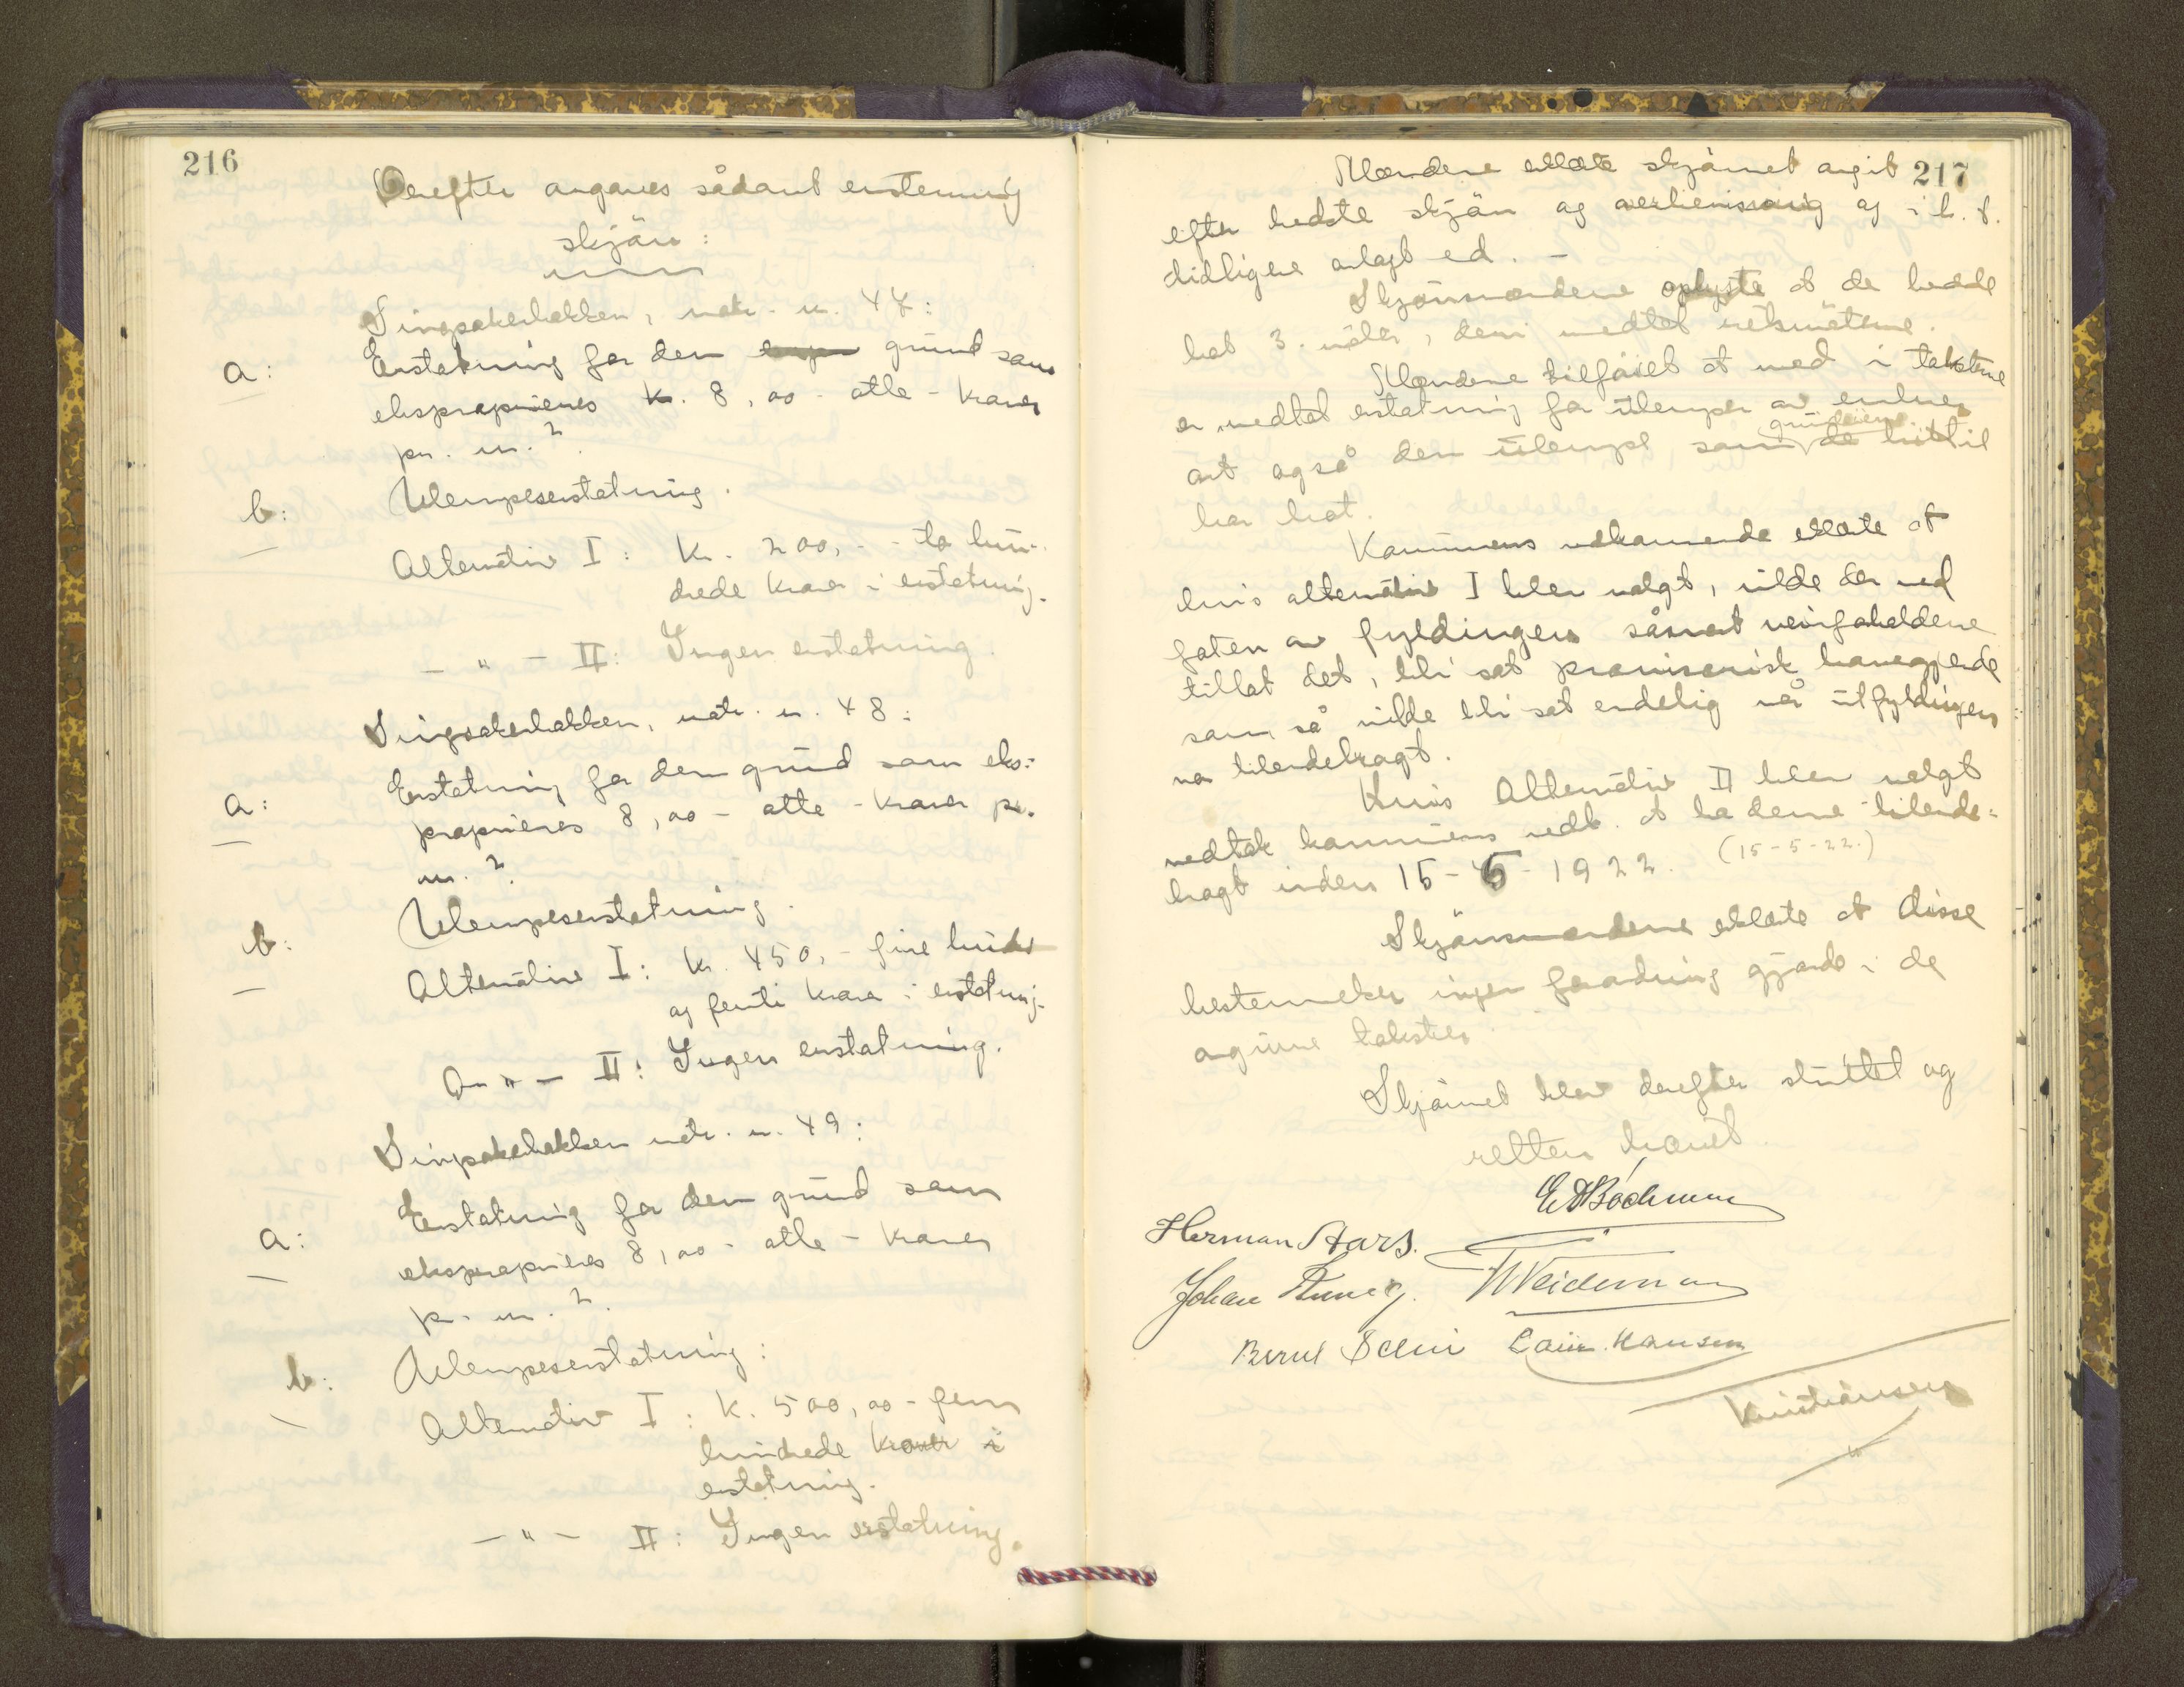 216
Derefter avgaves sådant enstemmig
skjøn:
Singsakerbakken, matr. nr. 47:
a: Erstatning for den grund som
eksproprieres kr. 8,00 - otte - kroner
pr. m.2
b: Ulempeserstatning.
Alternativ I: kr. 200,- - to hun-
drede kroner i erstatning.
- " - II: Ingen erstatning.
Singsakerbakken, matr. nr. 48:
a: Erstatning for den grund som eks=
proprieres 8,00 - otte - kroner pr.
m.2.
b: Ulempeserstatning.
Alternativ I: kr. 450,- fire hundr
og femti kroner i erstatning.
- " - II: Ingen erstatning.
Singsakerbakken matr. nr. 49:
a: Erstatning for den grund som
eksproprieres 8,00 - otte - kroner
pr. m.2.
b: Ulempeserstatning:
Alternativ I: kr. 500,00 - fem
hundrede kroner i
erstatning.
- " - II: Ingen erstatning.
217
Mændene erklærte skjønnet avgit
efter bedste skjøn og overbevisning og i h. t.
tidligere avlagt ed. -
Skjønsmændene oplyste at de hadde
hat 3. møter, deri medtat retsmøterne.
Mændene tilføiet at med i taksterne
er medtat erstatning for ulemper av enhver
art også den ulempe som grundeierne de hittil
har hat.
Kommunens vedkommende erklærte at
hvis alternativ I blev valgt, vilde der ved
foten av fyldingen såsnart veirforholdene
tillot det, bli sat provisorisk havegjerde
som så vilde bli sat endelig når utfyldingen
var tilendebragt.
Hvis Alternativ II blev valgt
vedtok kommunens vedk. at ha denne tilende=
bragt inden 15-5-1922. (15-5-22.)
Skjønsmændene erklærte at disse
bestemmelser ingen forandring gjorde i de
avgivne takster.
Skjønnet blev derefter sluttet og
retten hævet.
Herman Aars.
Johan
Weidemann
Laur. Hansen
Kristiansen